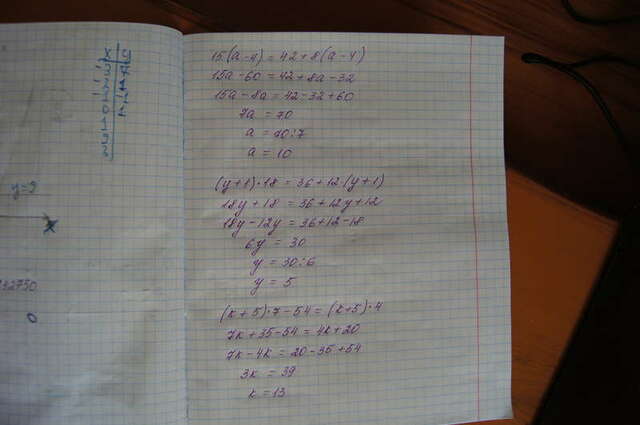 y=9
x
32750
0
15(a-4)=42+8(a-4)
15a-60=42+8a-32
15a-8a=42-32+60
7a=70
a=70:7
a=10
(y+1)·18=36+12(y+1)
18y+18=36+12y+12
18y-12y=36+12-18
6y=30
y=30:6
y=5
(k+5)·7-54=(k+5)·4
7k+35-54=4k+20
7k-4k=20-35+54
3k=39
k=13